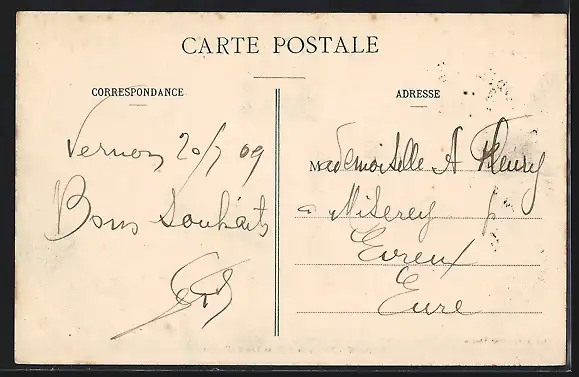 CARTE POSTALE
CORRESPONDANCE
Vernon 20/7 09
Bons Souhaits
ADRESSE
Mademoiselle A Fleury
a Miserey p
Evreux
Eure